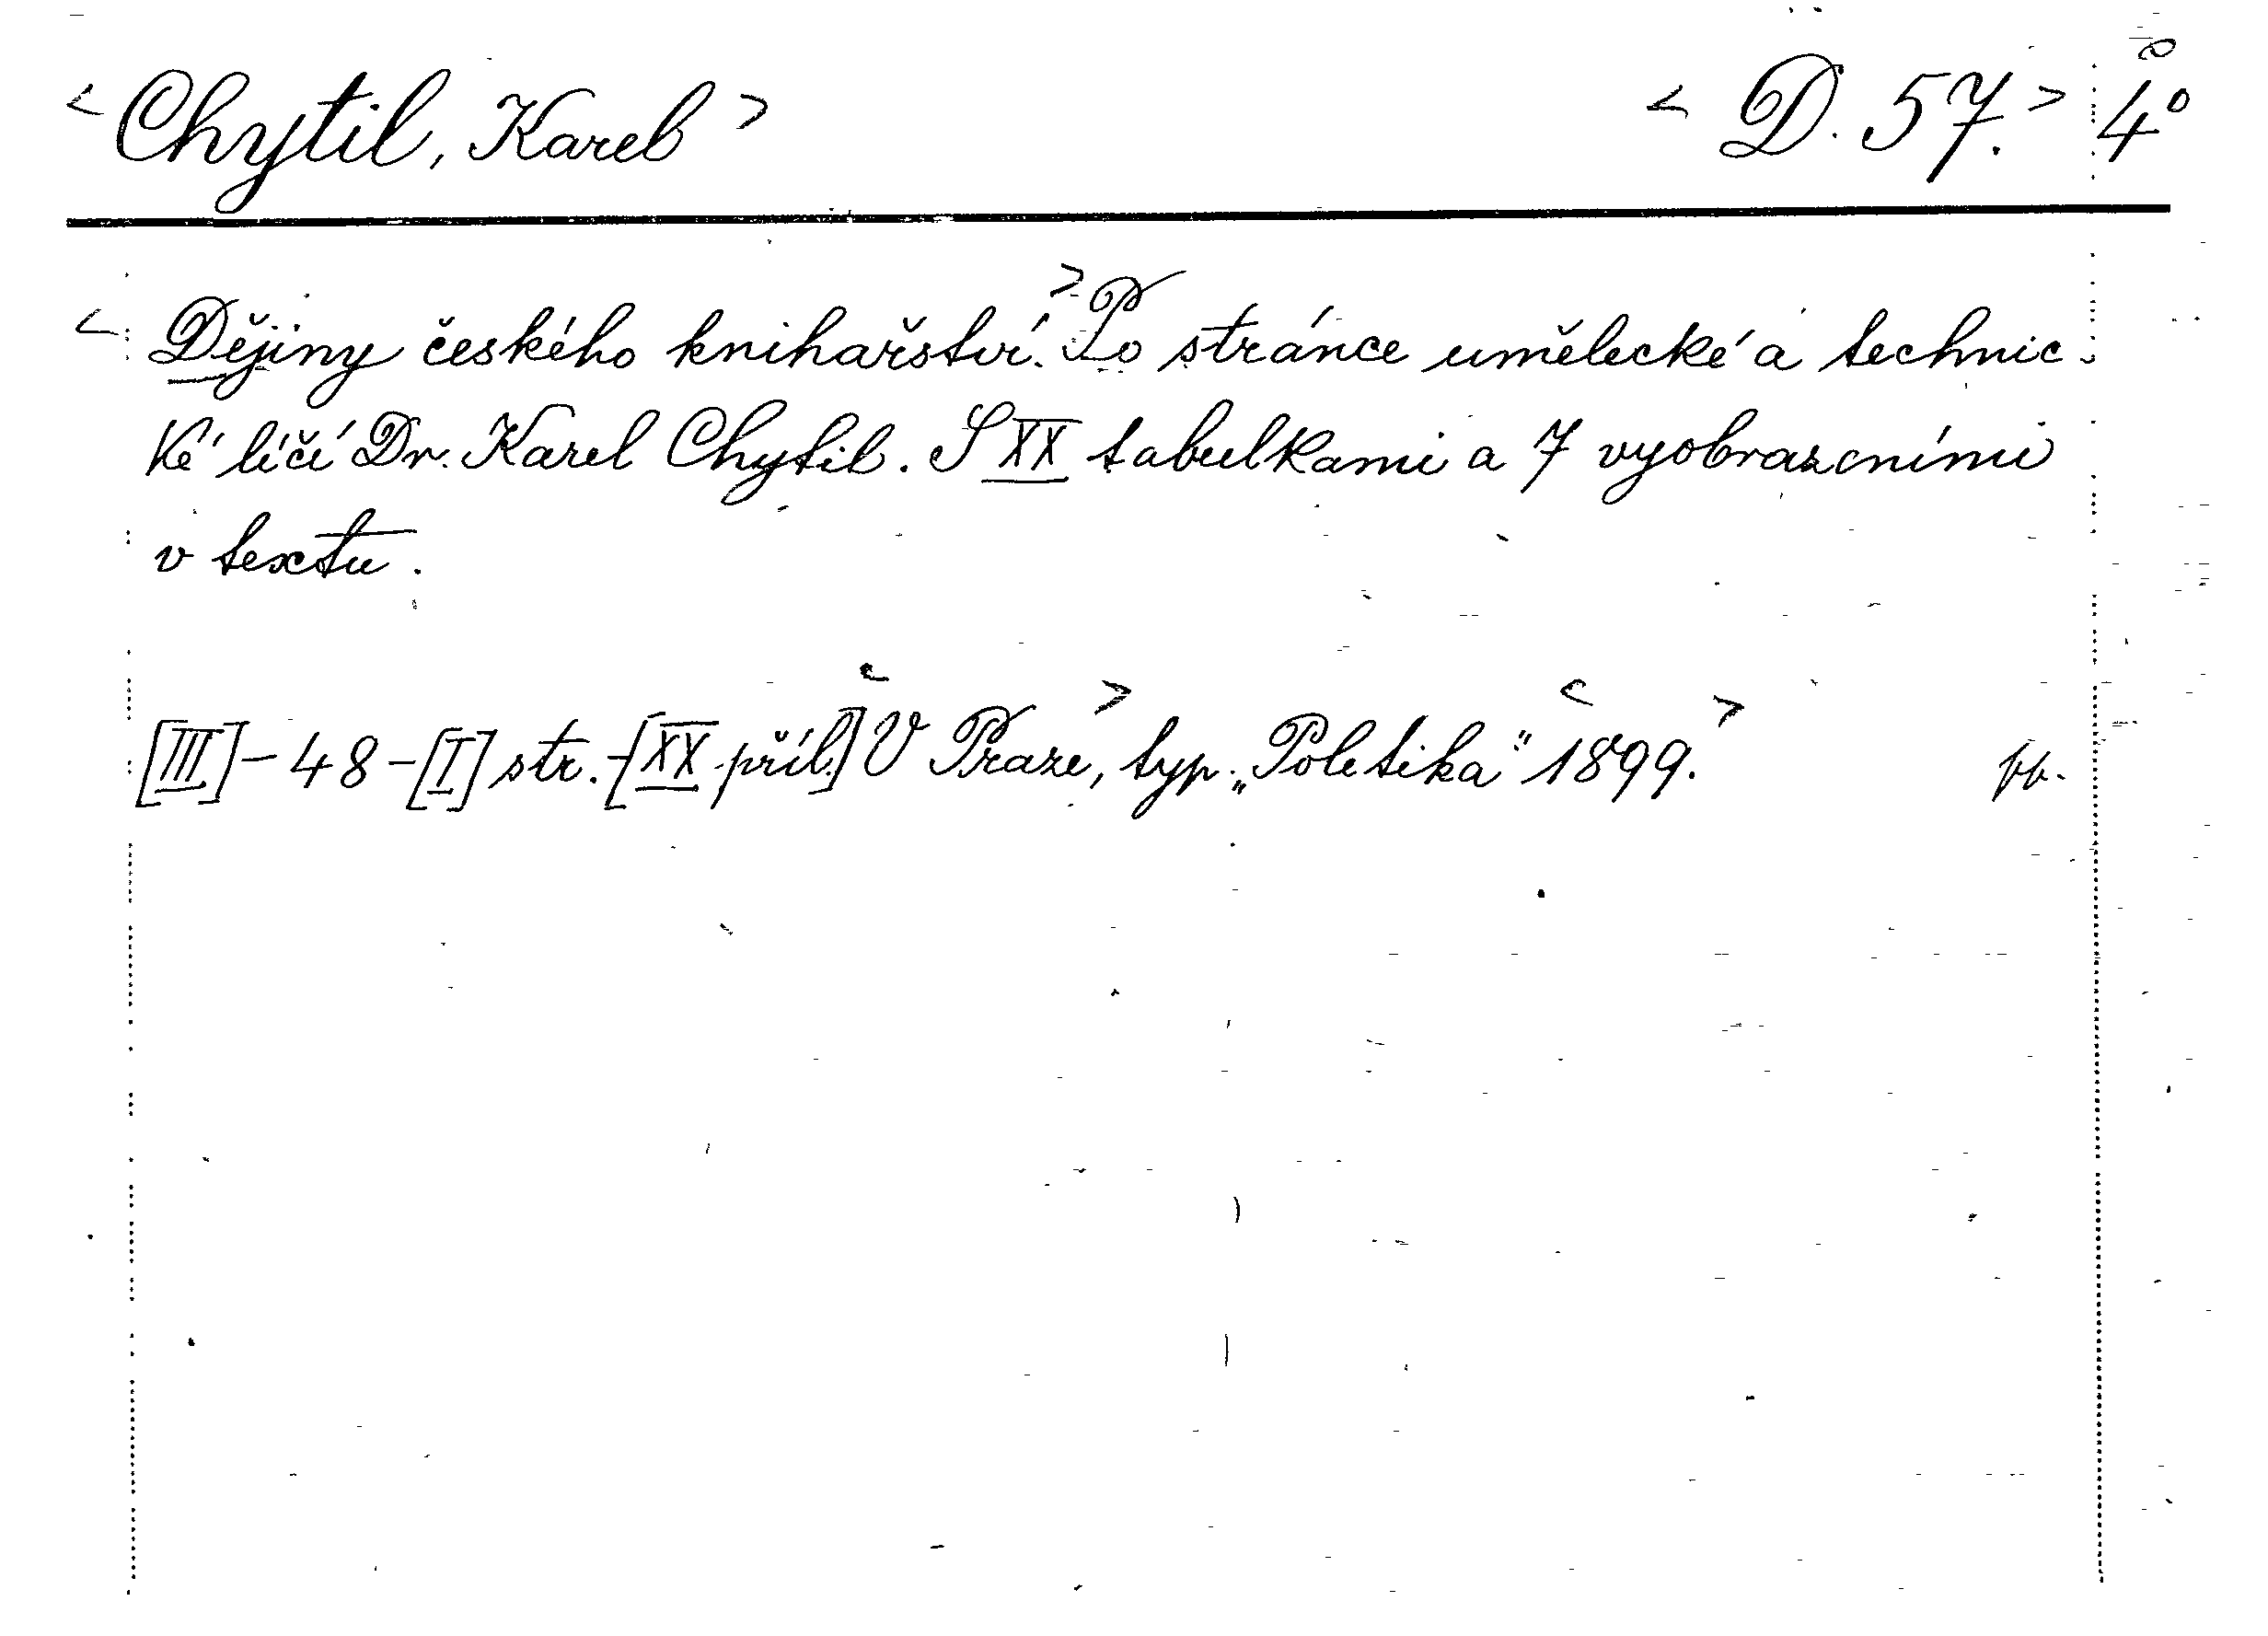 <Chytil, Karel> <D. 57.> 4°
<Dějiny českého knihařství.> Po stránce umělecké a technic
ké líčí Dr. Karel Chytil. S XX tabulkami a 7 vyobrazeními
v textu.
[III]-48-[I] str.-[XX příl.] <V Praze>, typ. „Politika“ <1899.>